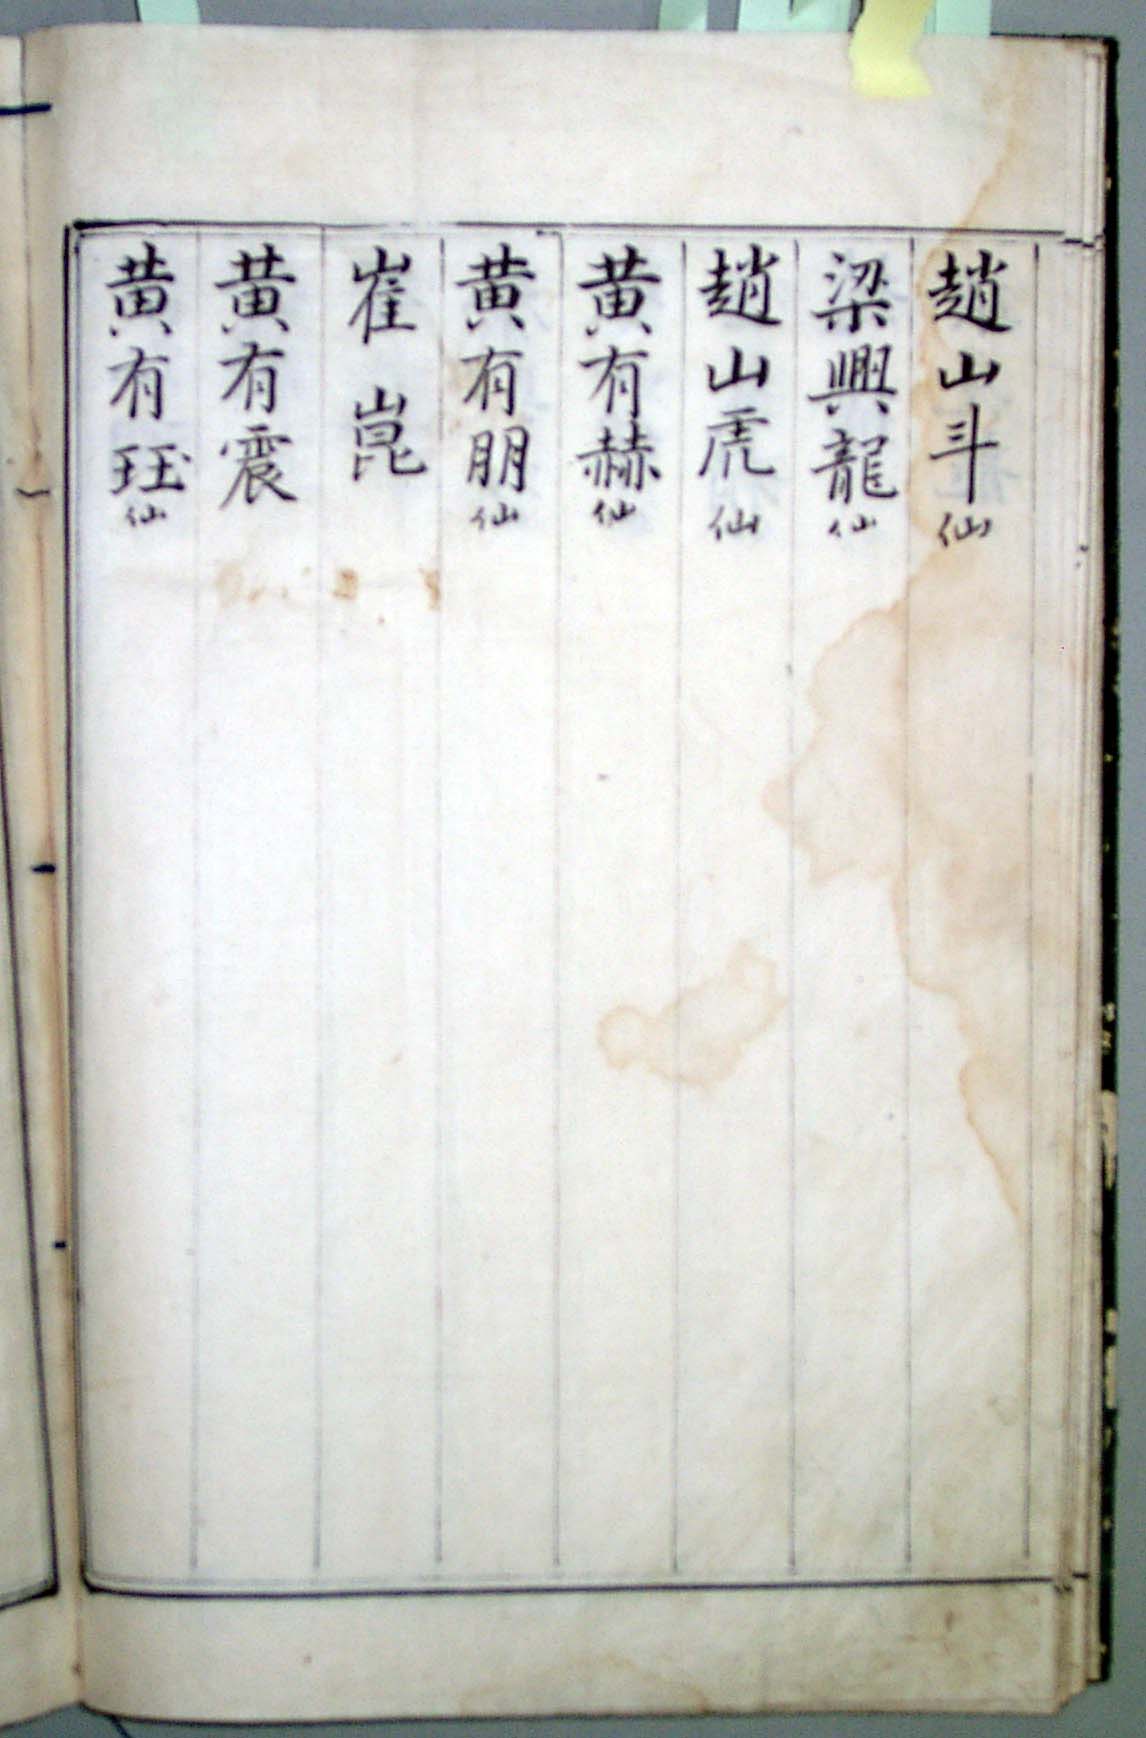 趙山斗仙
梁興龍仙
趙山虎仙
黃有赫仙
黃有朋仙
崔崑
黃有震
黃有珏仙